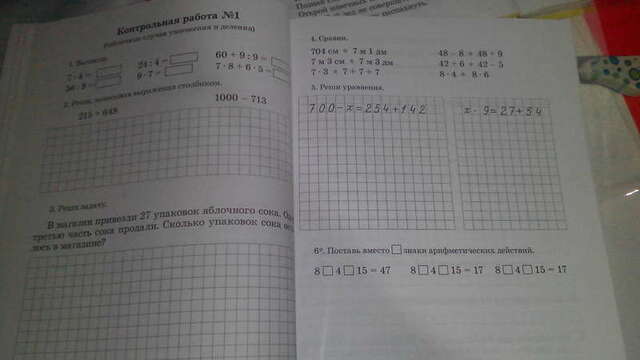 Контрольная работа №1
(табличные случаи умножения и деления)
1. Вычисли.
7 · 4 =
24 : 4 =
60 + 9 : 9 =
56 : 8 =
9 · 7 =
7 · 8 + 6 · 5 =
2. Реши, записывая выражения столбиком.
215 + 648
1000 − 713
3. Реши задачу.
В магазин привезли 27 упаковок яблочного сока.
третью часть сока продали. Сколько упаковок сока
лось в магазине?
4. Сравни.
704 см * 7 м 1 дм
48 − 8 * 48 + 9
7 м 3 см * 7 м 3 дм
42 + 6 * 42 − 5
7 · 3 * 7 + 7 + 7
8 · 4 * 8 · 6
5. Реши уравнения.
700 − x = 254 + 142
x · 9 = 27 + 54
6*. Поставь вместо □ знаки арифметических действий.
8 □ 4 □ 15 = 47
8 □ 4 □ 15 = 17
8 □ 4 □ 15 = 17